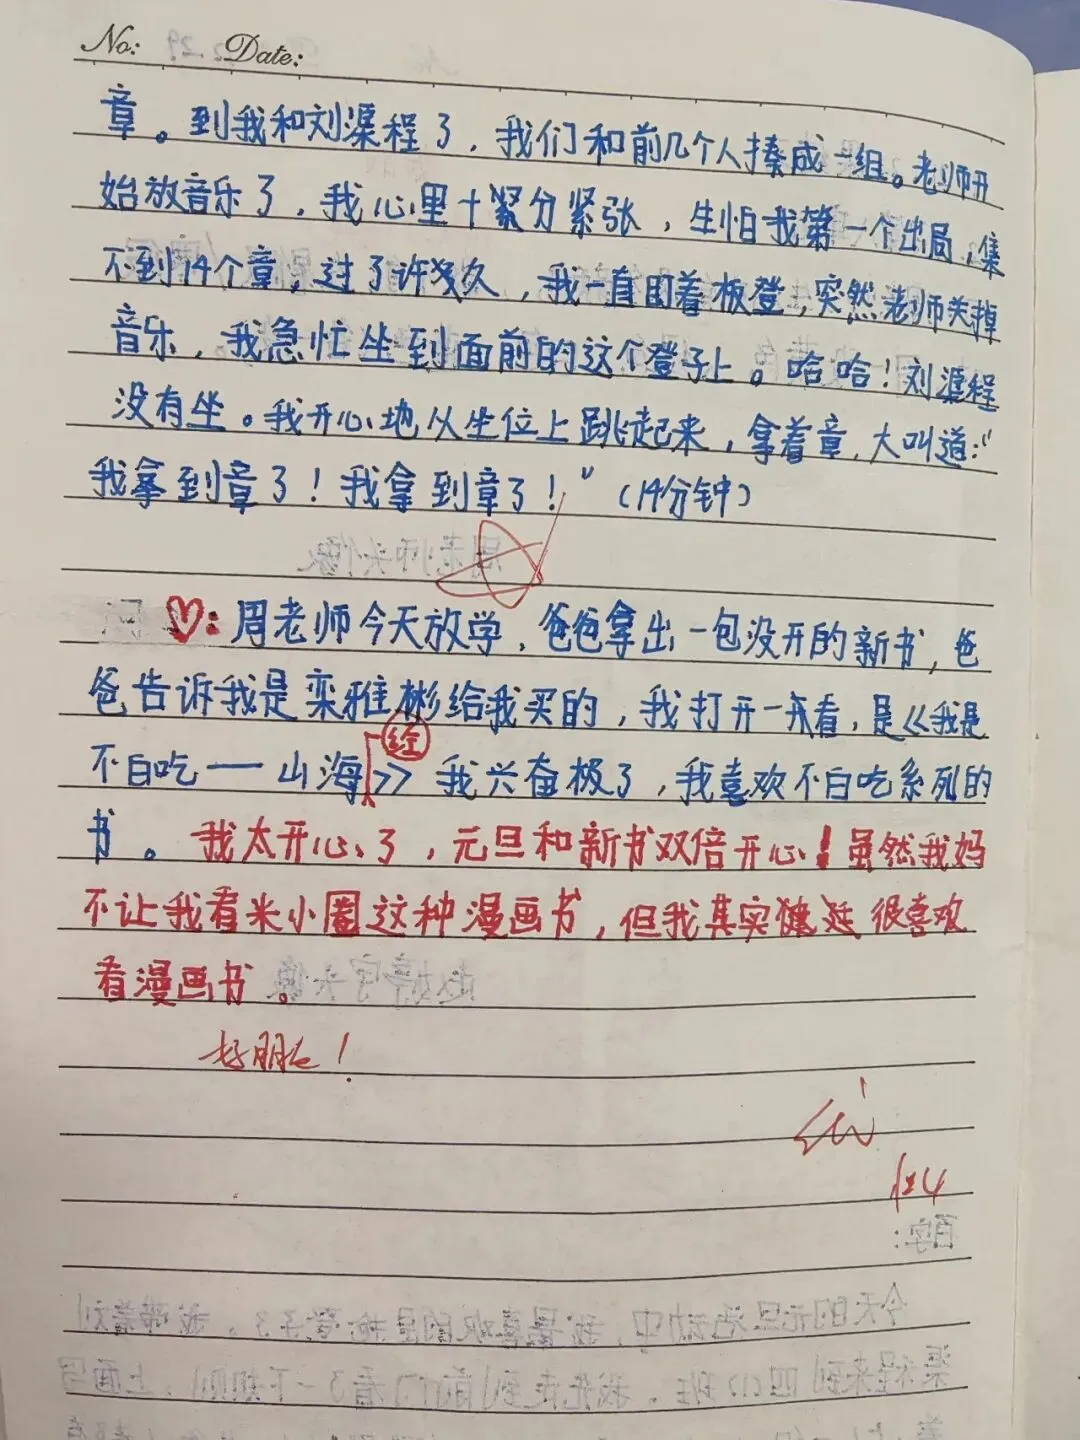 No: Date:
章。到我和刘渠程了，我们和前几个人揍成一组。老师开
始放音乐了，我心里十紧分紧张，生怕我第一个出局，集
不到14个章，过了许久，我一直盯着板登，突然老师关掉
音乐，我急忙坐到面前的这个登子上。哈哈！刘渠程
没有坐。我开心地从坐位上跳起来，拿着章，大叫道：“
我拿到章了！我拿到章了！”（14分钟）
♡：周老师今天放学，爸爸拿出一包没开的新书，爸
爸告诉我是栾雅彬给我买的，我打开一看，是《我是
不白吃——山海经》我兴奋极了，我喜欢不白吃系列的
书。我太开心了，元旦和新书双倍开心！虽然我妈
不让我看米小圈这种漫画书，但我其实很喜欢
看漫画书。
好朋友！